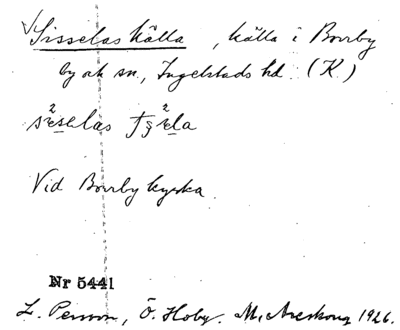 Sisselas källa, källa i Borrby
by ok sn., Ingelstads hd (K)
Vid Borrby kyrka.
Nr 5441
L. Persson, Ö. Hoby. M. Areskoug 1926.